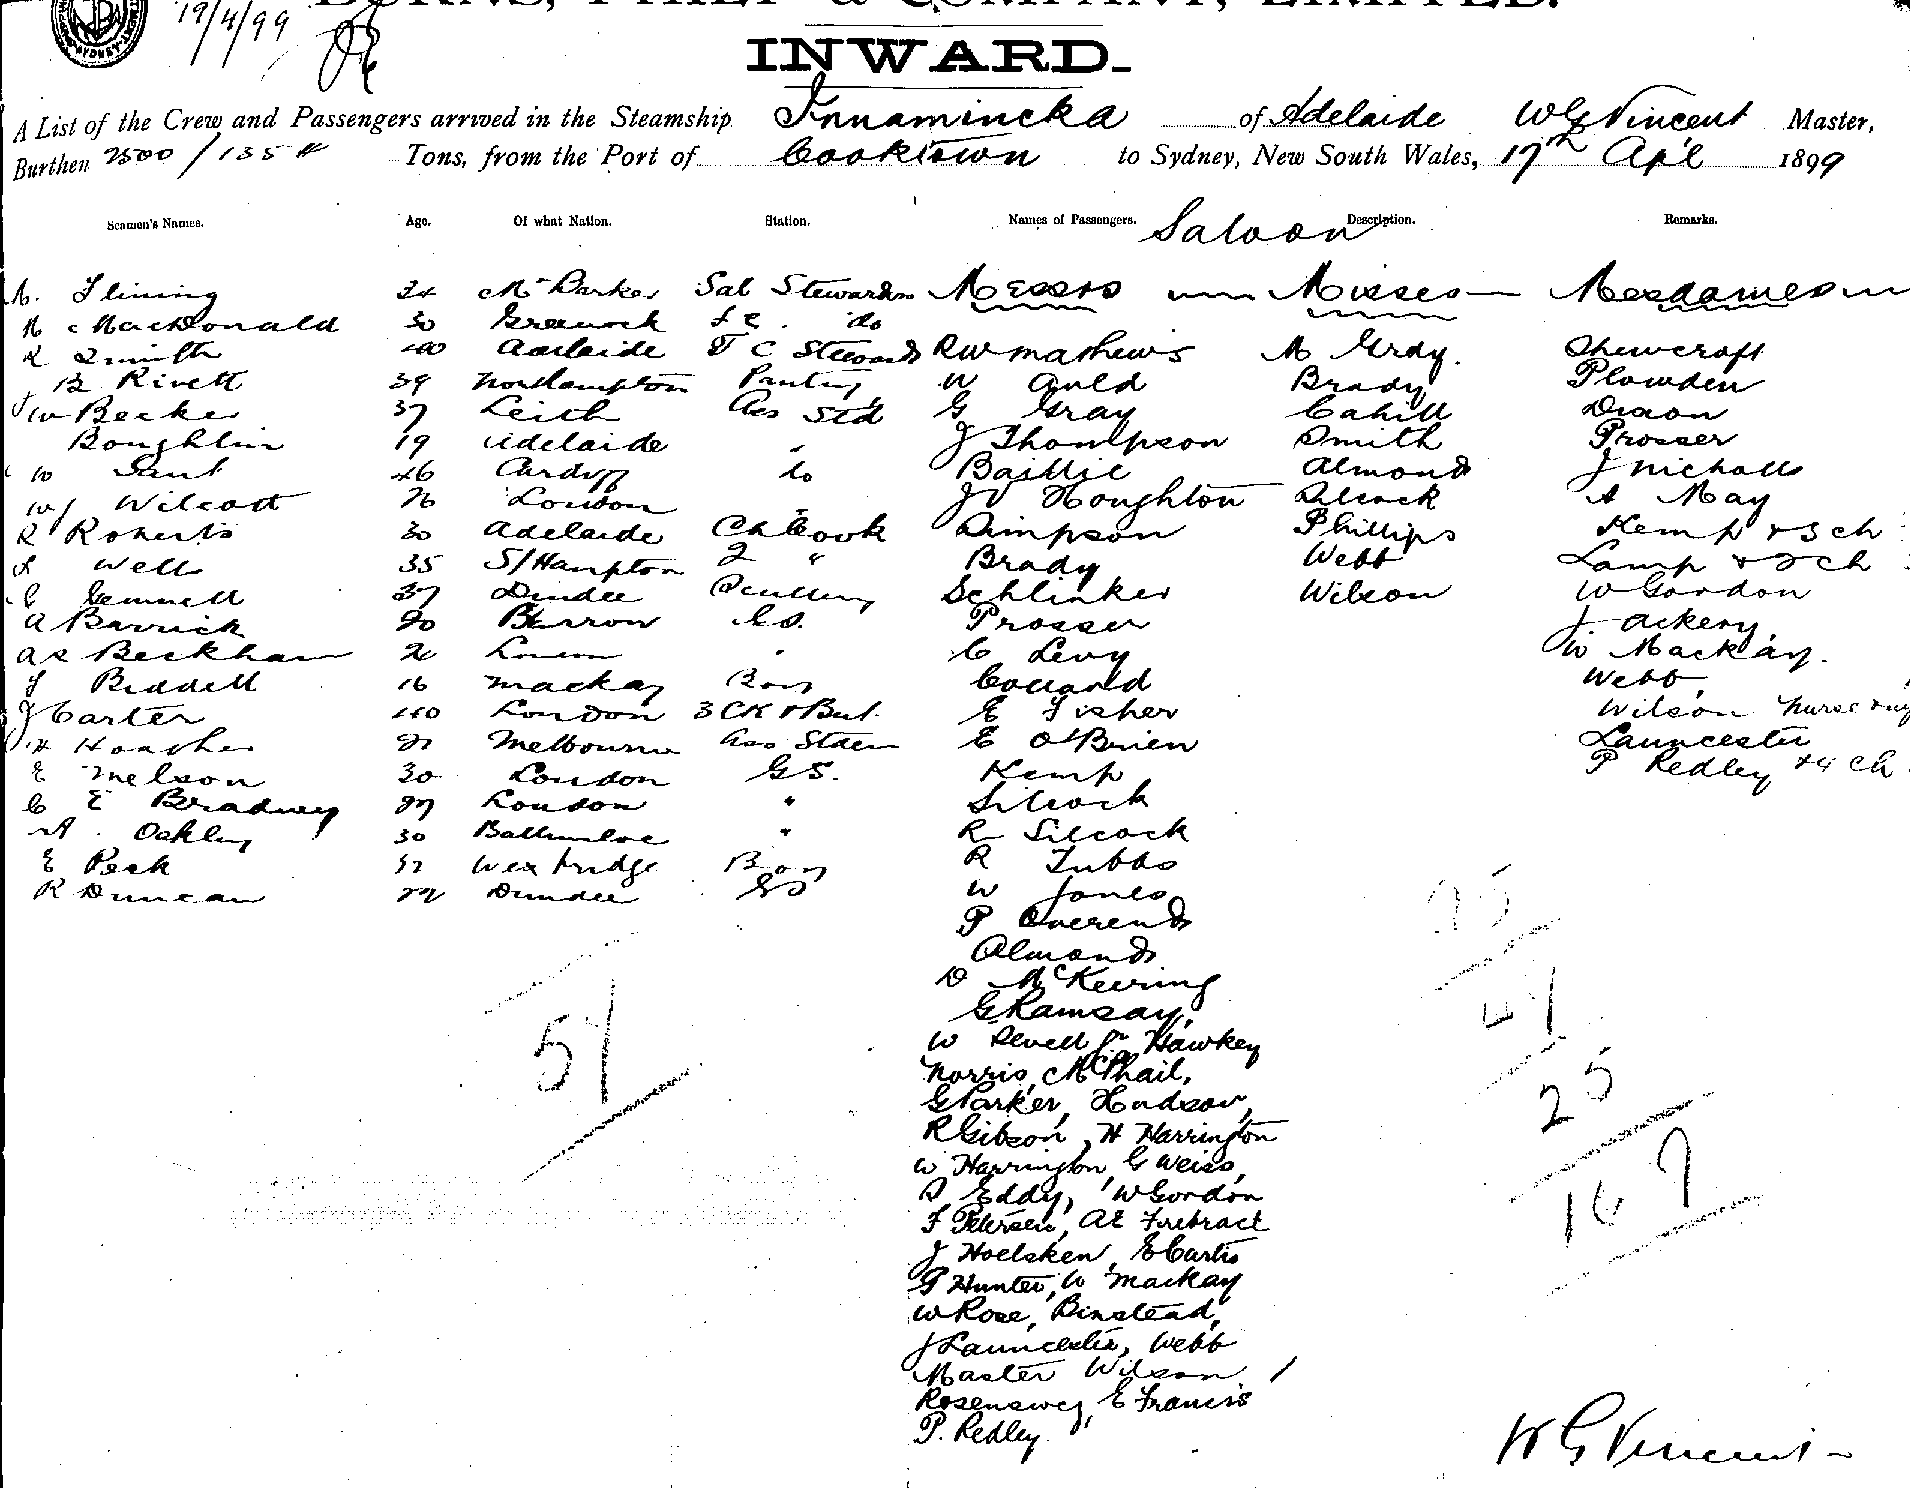 19/4/99
BURNS, PHILP & COMPANY, LIMITED.
INWARD.
A List of the Crew and Passengers arrived in the Steamship Innamincka of Adelaide W G Vincent Master,
Burthen 2500 / Tons, from the Port of Cooktown to Sydney, New South Wales, 17th Apl 1899
Seamen's Names. Age. Of what Nation. Station. Names of Passengers. Saloon Description. Remarks.
Fleming 24 Mt Barker Sal Stewardss Messrs Misses Mesdames
MacDonald 30 Greenock do
Smith 40 Adelaide Steward R W Mathews M Gray. Shewcroft
B Rivett 39 Northampton Pantry W Auld Brady Plowden
W Becker 37 Leith Ass Std G Gray Cahill Dixon
Boughlin 19 Adelaide " J Thompson Smith Prosser
W Sant 46 Cardiff do Baillie Almond J Nicholls
W J Wilcott 26 London J V Houghton Silcock A May
R Roberts 30 Adelaide Ch Cook Simpson Phillips Kemp & 3 ch
Wells 35 S/Hampton 2 " Brady Webb Lamp & 2 ch
Gemmell 37 Dundee Scullery Schlinker Wilson W Gordon
A Barrick 20 Barrow G.S. Prosser J Ackery
A S Beckham " C Levy W Mackay.
Biddell 16 Mackay Boy Collard Webb
J Carter 40 London 3 CK & But. E Fisher Wilson nurse &
H Melbourne Ass Stden E O'Brien Launcester
E Nelson 30 London G S. Kemp P Redley & 4 ch
C E Bradwey 27 London " Silcock
A. Oakley 30 " R Silcock
E Peck Boy R Tubbs
R Duncan Dundee GS W Jones
P Overend
Almond
D McKeering
G Ramsay,
W Revell Jr, Hawkey
Norris, McPhail,
G Parker, Hudson,
R Gibson, H Harrington
W Harrington, G Weiss,
S Eddy, W Gordon
F Petersen, A E Firebrace
J Hoelsken, E Curtis
G Hunter, W Mackay
W Rose, Binstead,
J Launcester, Webb
Master Wilson /
Rosensweg, E Francis
P. Redley
25
W G Vincent